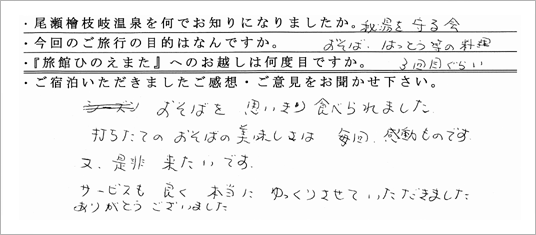 ・尾瀬檜枝岐温泉を何でお知りになりましたか。秘湯を守る会
・今回のご旅行の目的はなんですか。 おそば、はっとう等の料理
・『旅館ひのえまた』へのお越しは何度目ですか。 3回目ぐらい
・ご宿泊いただきましたご感想・ご意見をお聞かせ下さい。
おそばを 思いきり 食べられました
打ちたての おそばの 美味しさは 毎回、感動ものです.
又、是非 来たいです.
サービスも 良く 本当に ゆっくりさせていただきました
ありがとう ございました